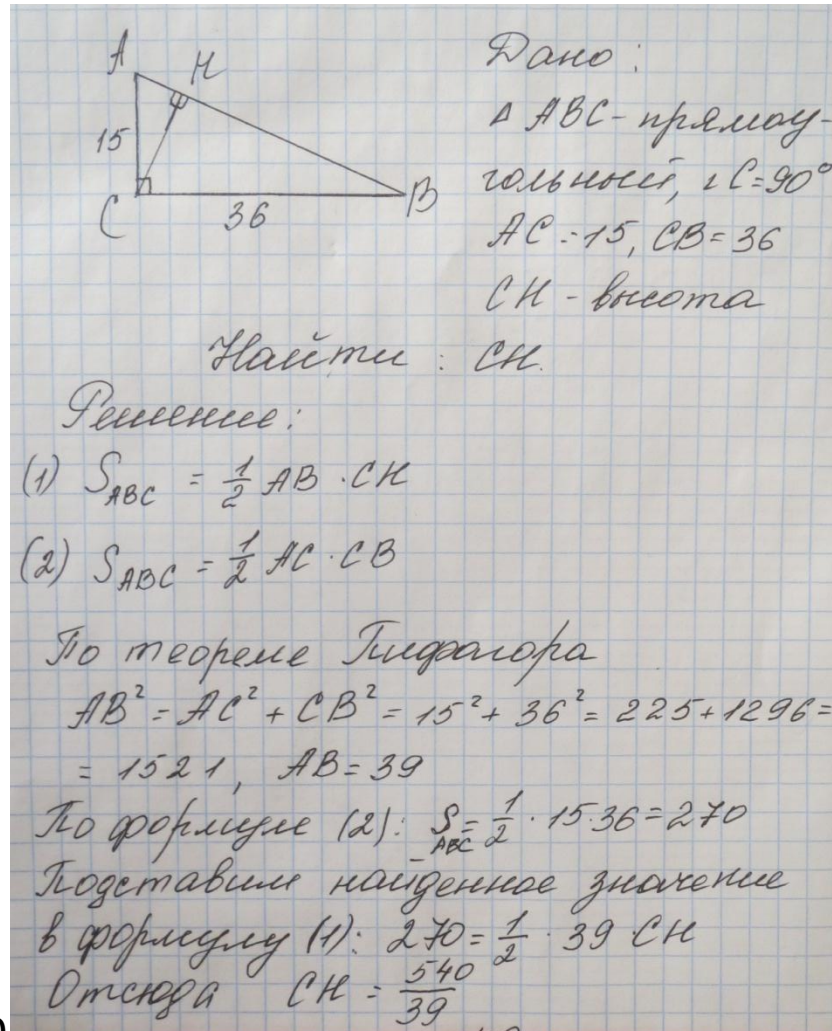 A H
15
C 36 B
Дано:
Δ ABC - прямоу-
гольный, ∠C=90°
AC=15, CB=36
CH - высота
Найти: CH.
Решение:
(1) S_ABC = 1/2 AB · CH
(2) S_ABC = 1/2 AC · CB
По теореме Пифагора
AB² = AC² + CB² = 15² + 36² = 225 + 1296 =
= 1521, AB = 39
По формуле (2): S_ABC = 1/2 · 15·36 = 270
Подставим найденное значение
в формулу (1): 270 = 1/2 · 39 · CH
Отсюда CH = 540/39